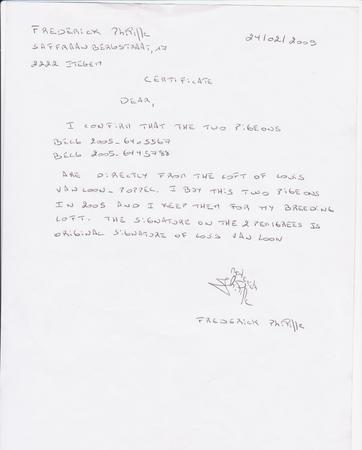 FREDERICK Philippe
SAFFRAAN BERGSTRAAT, 17
2222 ITEGEM
24/02/2009
CERTIFICATE
DEAR,
I CONFIRM THAT THE TWO PIGEONS
BELG 2005-6405567
BELG 2005-6445788
ARE DIRECTLY FROM THE LOFT OF LOUIS
VAN LOON-POPPEL. I BUY THIS TWO PIGEONS
IN 2005 AND I KEEP THEM FOR MY BREEDING
LOFT. THE SIGNATURE ON THE 2 PEDIGREES IS
ORIGINAL SIGNATURE OF LOUIS VAN LOON
FREDERICK Philippe